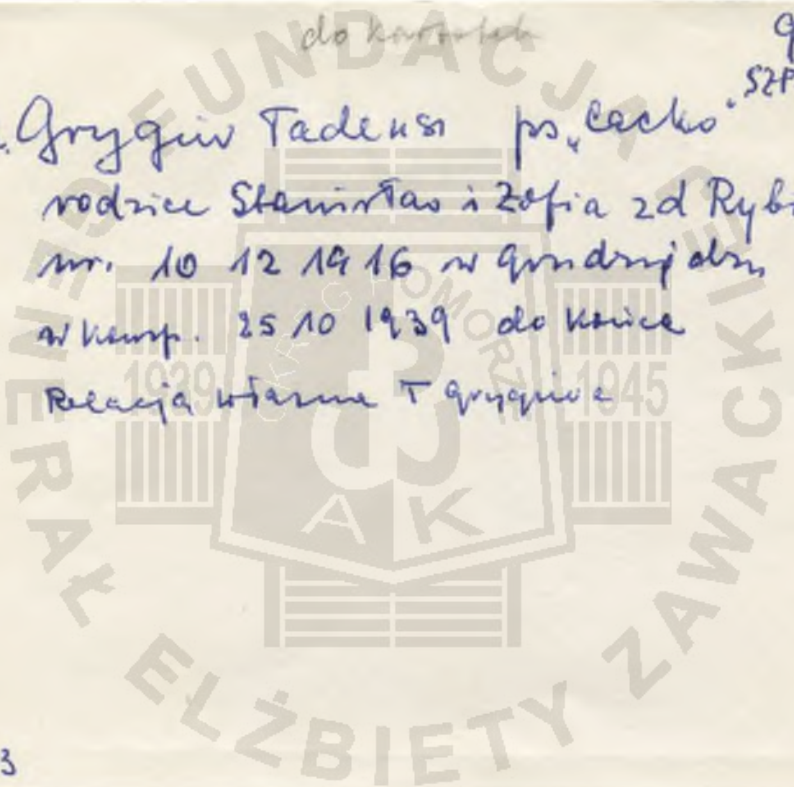 do kartotek
SZP
Grygiw Tadeusz ps „Cacko"
rodzice Stanisław i Zofia zd Rybi
ur. 10 12 1916 w Grudziądzu
w konsp. 25 10 1939 do końca
Relacja własna T Grygiwa
3
FUNDACJA
GENERAŁ ELŻBIETY ZAWACKIEJ
OKRĘG POMORZE
1939 1945
AK